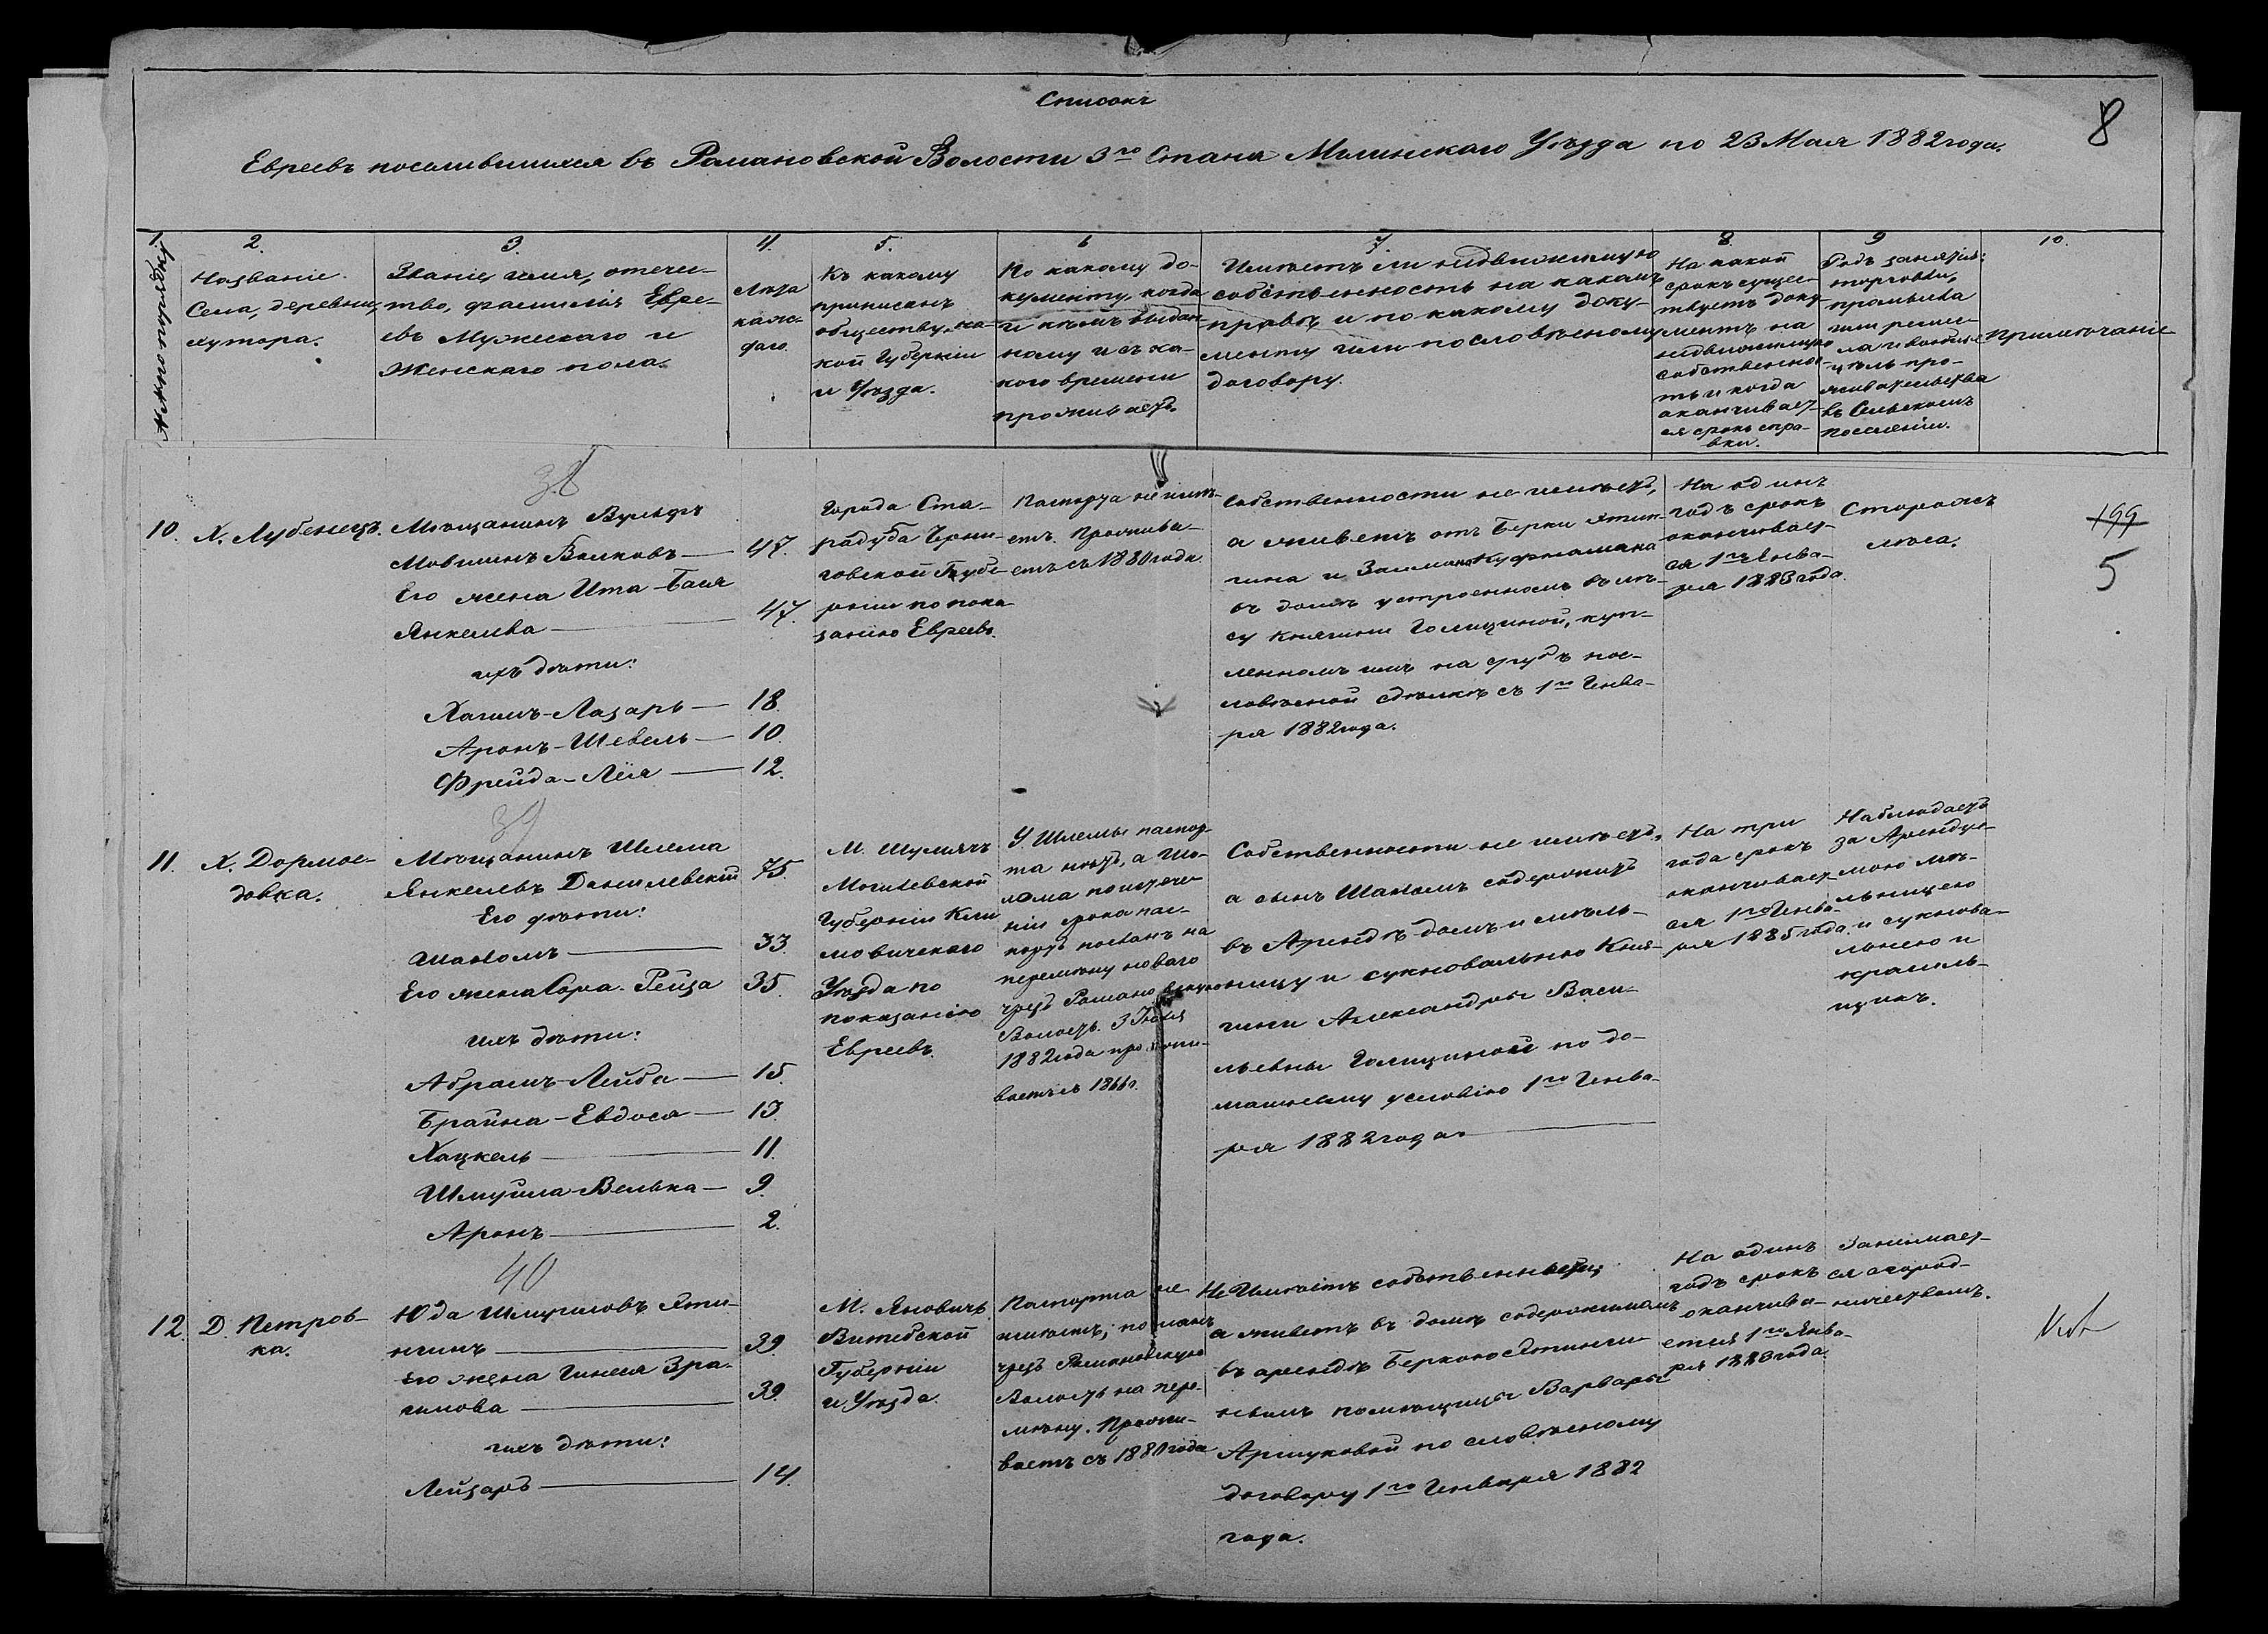 Списокъ
8
Евреевъ поселившихся въ Романовской Волости 3го Стана Мглинскаго Уѣзда по 23 Мая 1882 года.
1.
№№ по порядку
2.
Названіе
Села, деревни,
хутора.
3.
Званіе, имя, отече-
тво, фамилія Евре-
евъ Мужескаго и
Женскаго пола.
4.
Лѣта
каж-
даго.
5.
Къ какому
приписанъ
обществу, ка-
кой Губерніи
и Уѣзда.
6
По какому до-
кументу, когда
и кѣмъ выдан-
ному и съ ка-
кого времени
проживаетъ.
7.
Имѣетъ ли недвижимую
собственность на какомъ
правѣ и по какому доку-
менту или по словѣсному
договору.
8.
На какой
срокъ сущес-
твуетъ доку-
ментъ на
недвижимую
собственнос-
ть и когда
оканчивает-
ся срокъ спра-
вки.
9
Родъ занятія:
торговли,
промысла
или ремес-
ла и вообще
цѣль про-
живательства
въ Сельскомъ
поселеніи.
10.
Примѣчаніе
38
10.
Х. Лубенецъ.
Мѣщанинъ Вульфъ
Мовшинъ Волковъ — 47.
Его жена Ита-Бася
Янкелева — 47.
ихъ дѣти:
Хаимъ-Лазарь — 18.
Аронъ-Шевель — 10.
Фрейда-Лея — 12.
Города Ста-
радуба Черни-
говской Губе-
рніи по пока-
занію Евреевъ.
Паспорта не имѣ-
етъ. Прожива-
етъ съ 1880 года.
Собственности не имѣетъ,
а живетъ отъ Берки Ятин-
гина и Залмана
въ домѣ устроенномъ въ лѣ-
су Княгини Голициной, куп-
ленномъ имъ на срубъ по с-
ловѣсной сдѣлкѣ съ 1го Генва-
ря 1882 года.
На одинъ
годъ срокъ
оканчивает-
ся 1го Янва-
ря 1883 года.
Сторожъ
лѣса.
199
5
39
11.
Х. Дормое-
довка.
Мѣщанинъ Шлема
Янкелевъ Данилевскій 75.
Его дѣти:
Шаломъ — 33.
Его жена Сора-Рейза 35.
ихъ дѣти:
Абрамъ-Лейба — 15.
Брайна-Евдося — 13.
Хацкель — 11.
Шмуйла-Велька — 9.
Аронъ — 2.
М. Шумячъ
Могилевской
Губерніи Кли-
мовичскаго
Уѣзда по
показанію
Евреевъ.
У Шлемы паспор-
та нѣтъ, а Шо-
лома по истече-
ніи срока пас-
портъ посланъ на
перемѣну новаго
чрезъ Романовскую
Волость 3
1882 года прожи-
ваетъ съ 1866 г.
Собственности не имѣетъ,
а сынъ Шаломъ содержитъ
въ Арендѣ домъ и мѣль-
ницу и сукновальню Кня-
гини Александры Васи-
льевны Голициной по до-
машнему условію 1го Генва-
ря 1882 года.
На три
года срокъ
оканчивает-
ся 1го Генва-
ря 1885 года.
Наблюдаетъ
за Арендуе-
мою мѣ-
льницею
и сукнова-
льнею и
красиль-
щикъ.
40
12.
Д. Петров-
ка.
Юда Шмуиловъ Яти-
нгинъ — 39.
Его жена Гинеся Зра-
илова — 39.
ихъ дѣти:
Лейзаръ — 14.
М. Яновичъ
Витебской
Губерніи
и Уѣзда.
Паспорта не
имѣетъ, посланъ
чрезъ Романовскую
Волость на пере-
мѣну. Прожи-
ваетъ съ 1880 года
Не Имѣетъ собственности,
а живетъ въ домѣ содержимомъ
въ арендѣ Беркою Ятинги-
невымъ помѣщицы Варвары
Аршуковой по словѣсному
договору 1го Генваря 1882
года.
На одинъ
годъ срокъ
оканчива-
ется 1го Янва-
ря 1883 года.
Занимает-
ся огород-
ничествомъ.